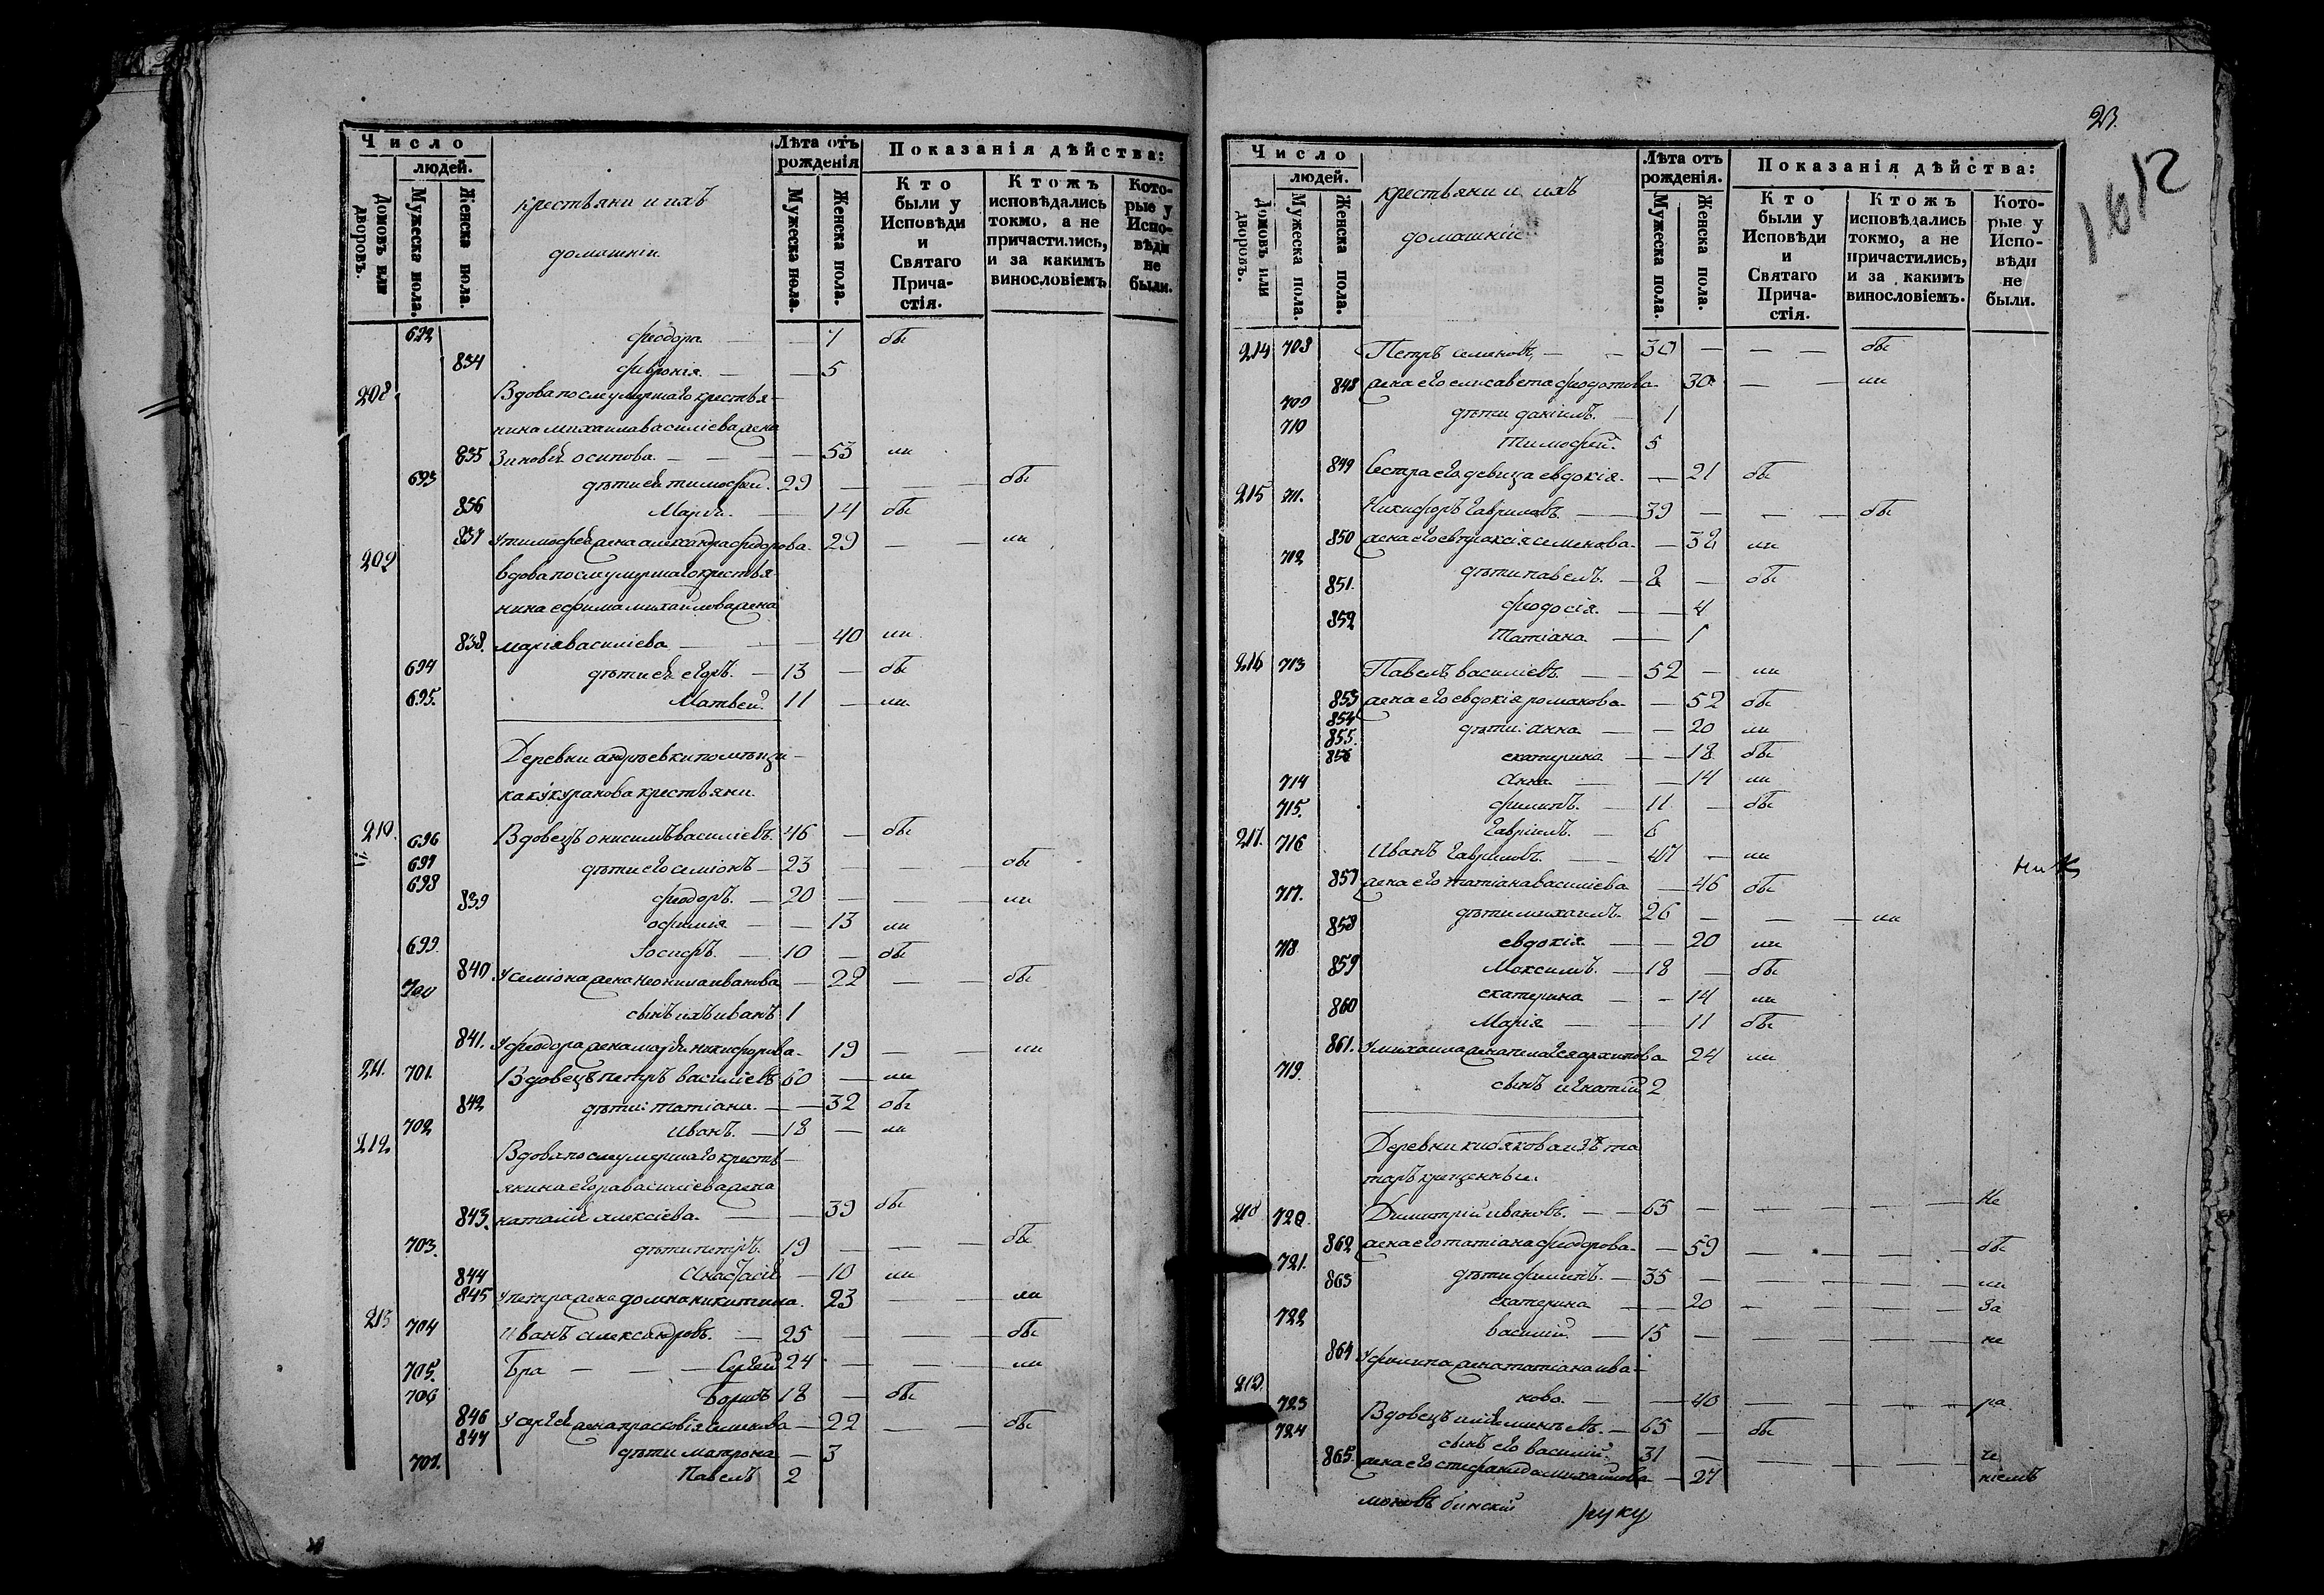 Число
людей.
Домовъ или дворовъ.
Мужеска пола.
Женска пола.
крестьяни и ихъ
домашніи
Лѣта отъ рожденія
Мужеска пола.
Женска пола.
Показанія дѣйства:
Кто были у Исповѣди и Святаго Причастія.
Ктожъ исповѣдались токмо, а не причастились, и за какимъ винословіемъ
Которые у Исповѣди не были.
692 феодора — — 7 бы
834 февронія — — 5
208. Вдова после умершаго крестья-
нина михаила василіева жена
835 Зиновія осипова — — 53 ли
693 дѣти ея тимофей. 29 — — — бы
836 Марія — 14 бы
837 у тимофея жена александра федорова 29 — — ли
209 вдова после умершаго крестья-
нина ефима михайлова жена
838. марія василіева — — 40 ли
694 дѣти ея егоръ. — 13 — бы
695. Матвей. 11 — ли
Деревни андреевки помѣщи-
ка кукуранова крестьяни
210. 696 Вдовецъ онисимъ василіевъ. 46 — бы
697 дѣти его семіонъ — 23 — — — бы
698 феодоръ. — 20 — — — ли
839 офимія — — 13 ли
699. Іосифъ. — 10 — бы
840. У семіона жена неонила иванова — 22 — — бы
700 сынъ ихъ иванъ 1
841. У феодора жена марія никифорова. 19 — — ли
211. 701. Вдовецъ петръ василіевъ 60 — ли
842 дѣти: татіана. — — 32 бы
702 иванъ. — 18 — ли
212. Вдова после умершаго кресть-
янина егора василіева жена
843. наталія алексіева. — — 39 бы
703. дѣти петръ. 19 — — — бы
844 Анастасія — 10 ли
845 У петра жена домна никитина. 23 — — ли
213 704 Иванъ александровъ. — 25 — — — бы
705. Бра — — Сергей 24 — — — ли
706 Борисъ 18 — бы
846 У сергея жена прасковія семенова — 22 — — бы
847 дѣти матрона — 3
707. Павелъ 2
23.
1612
Число
людей.
Домовъ или дворовъ.
Мужеска пола.
Женска пола.
крестьяни и ихъ
домашніи
Лѣта отъ рожденія.
Мужеска пола.
Женска пола.
Показанія дѣйства:
Кто были у Исповѣди и Святаго Причастія.
Ктожъ исповѣдались токмо, а не причастились, и за какимъ винословіемъ.
Которые у Исповѣди не были.
214 708 Петръ семеновъ, — — 30 — — — бы
848 жена его елисавета феодотова 30 — — ли
709 дѣти даніилъ. — 1
710 тимофей. 5
849 Сестра его девица евдокія. — 21 бы
215 711. Никифоръ гавриловъ. — 39 — — — бы
850 жена его евпраксія семенова — 32 ли
712 дѣти павелъ. — 8 — бы
851. феодосія. — — 4
852 Татіана — — 1
216 713 Павелъ василіевъ — — 52 — ли
853 жена его евдокія романова — 52 бы
854 дѣти: анна — — 20 ли
855. екатерина — — 18 бы
856 Анна — — 14 ли
714 филипъ. — 11 — бы
715. гавріилъ. — 6
217. 716 Иванъ гавриловъ. — — 47 — ли
857 жена его татіана василіева — 46 бы
717. дѣти михаилъ. 26 — — — ли
858 евдокія — — 20 ли
718 Максимъ. — 18 — бы
859 екатерина — — 14 ли
860 Марія — — 11 бы
861. У михаила жена пелагея архипова 24 ли
719. сынъ игнатій 2
Деревни кибякова изъ та
таръ крещенныи.
218 720. Димитрій ивановъ. — — 65 — — — — — Не
862 жена его татіана феодорова — 59 — — — — бы
721. дѣти филипъ. — 35 — — — — — ли
863 екатерина — — 20 — — — — За
722 василій — 15 — — — — — не
864 У филипа жена татіана ива-
нова. — — 40 — — — — ра
219. 723 Вдовецъ илія — 65 — бы
724 сынъ его василій. 31 — — — — — че
865. жена его стефанида михайлова — 27 ніемъ
руку